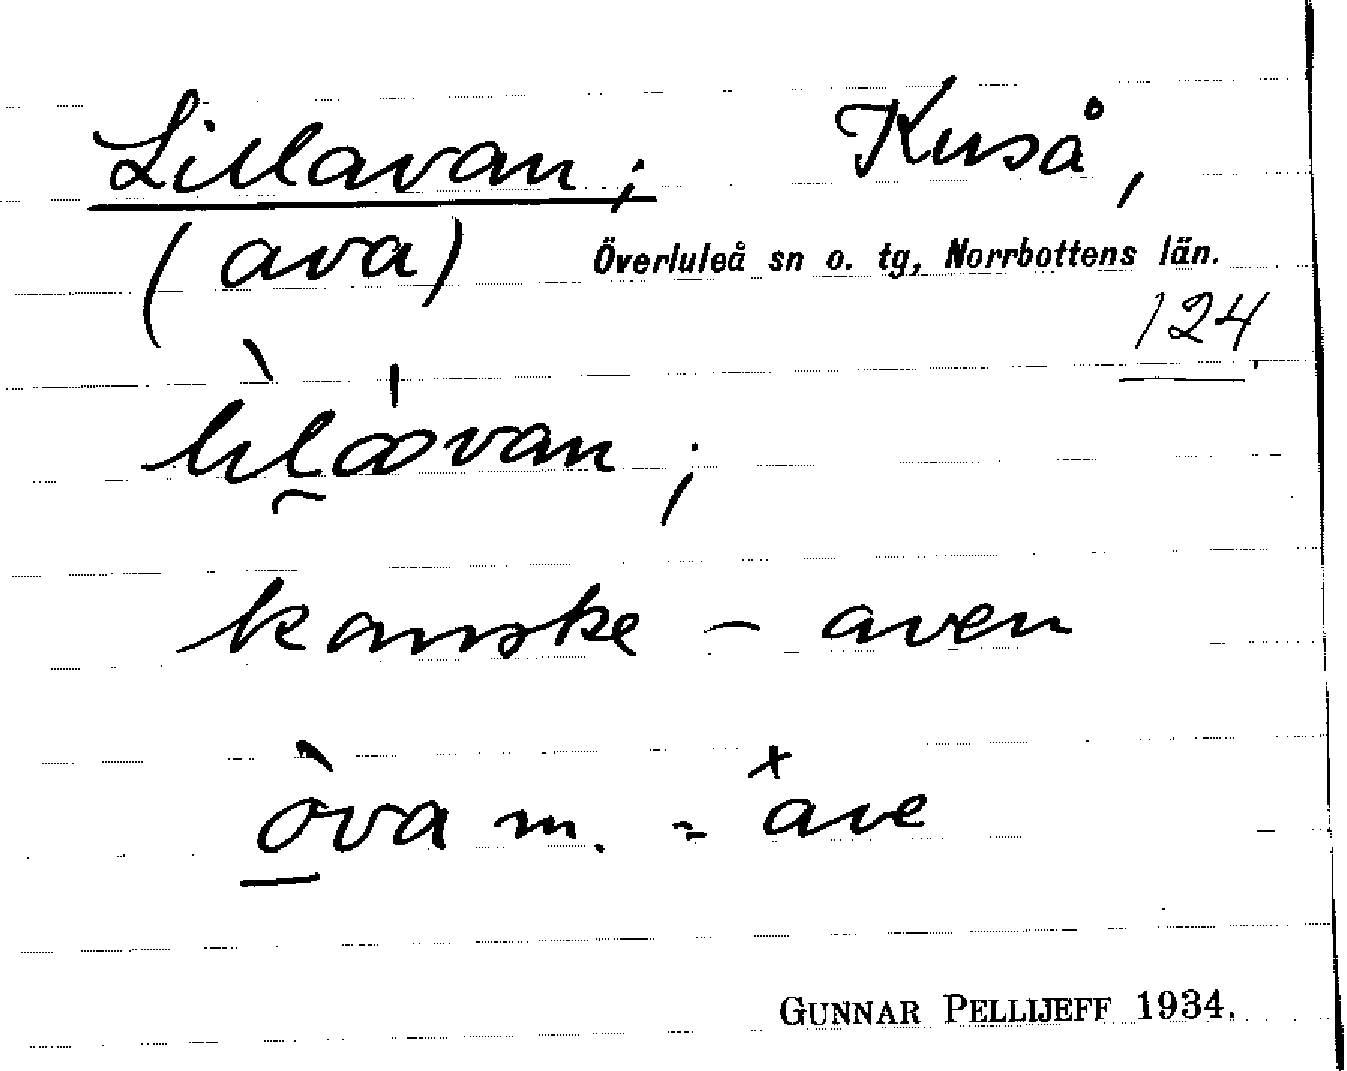 Lillavan; Kuså,
(ava) Överluleå sn o. tg, Norrbottens län.
124
kanske - aven
òva m. = ave
GUNNAR PELLIJEFF 1934.